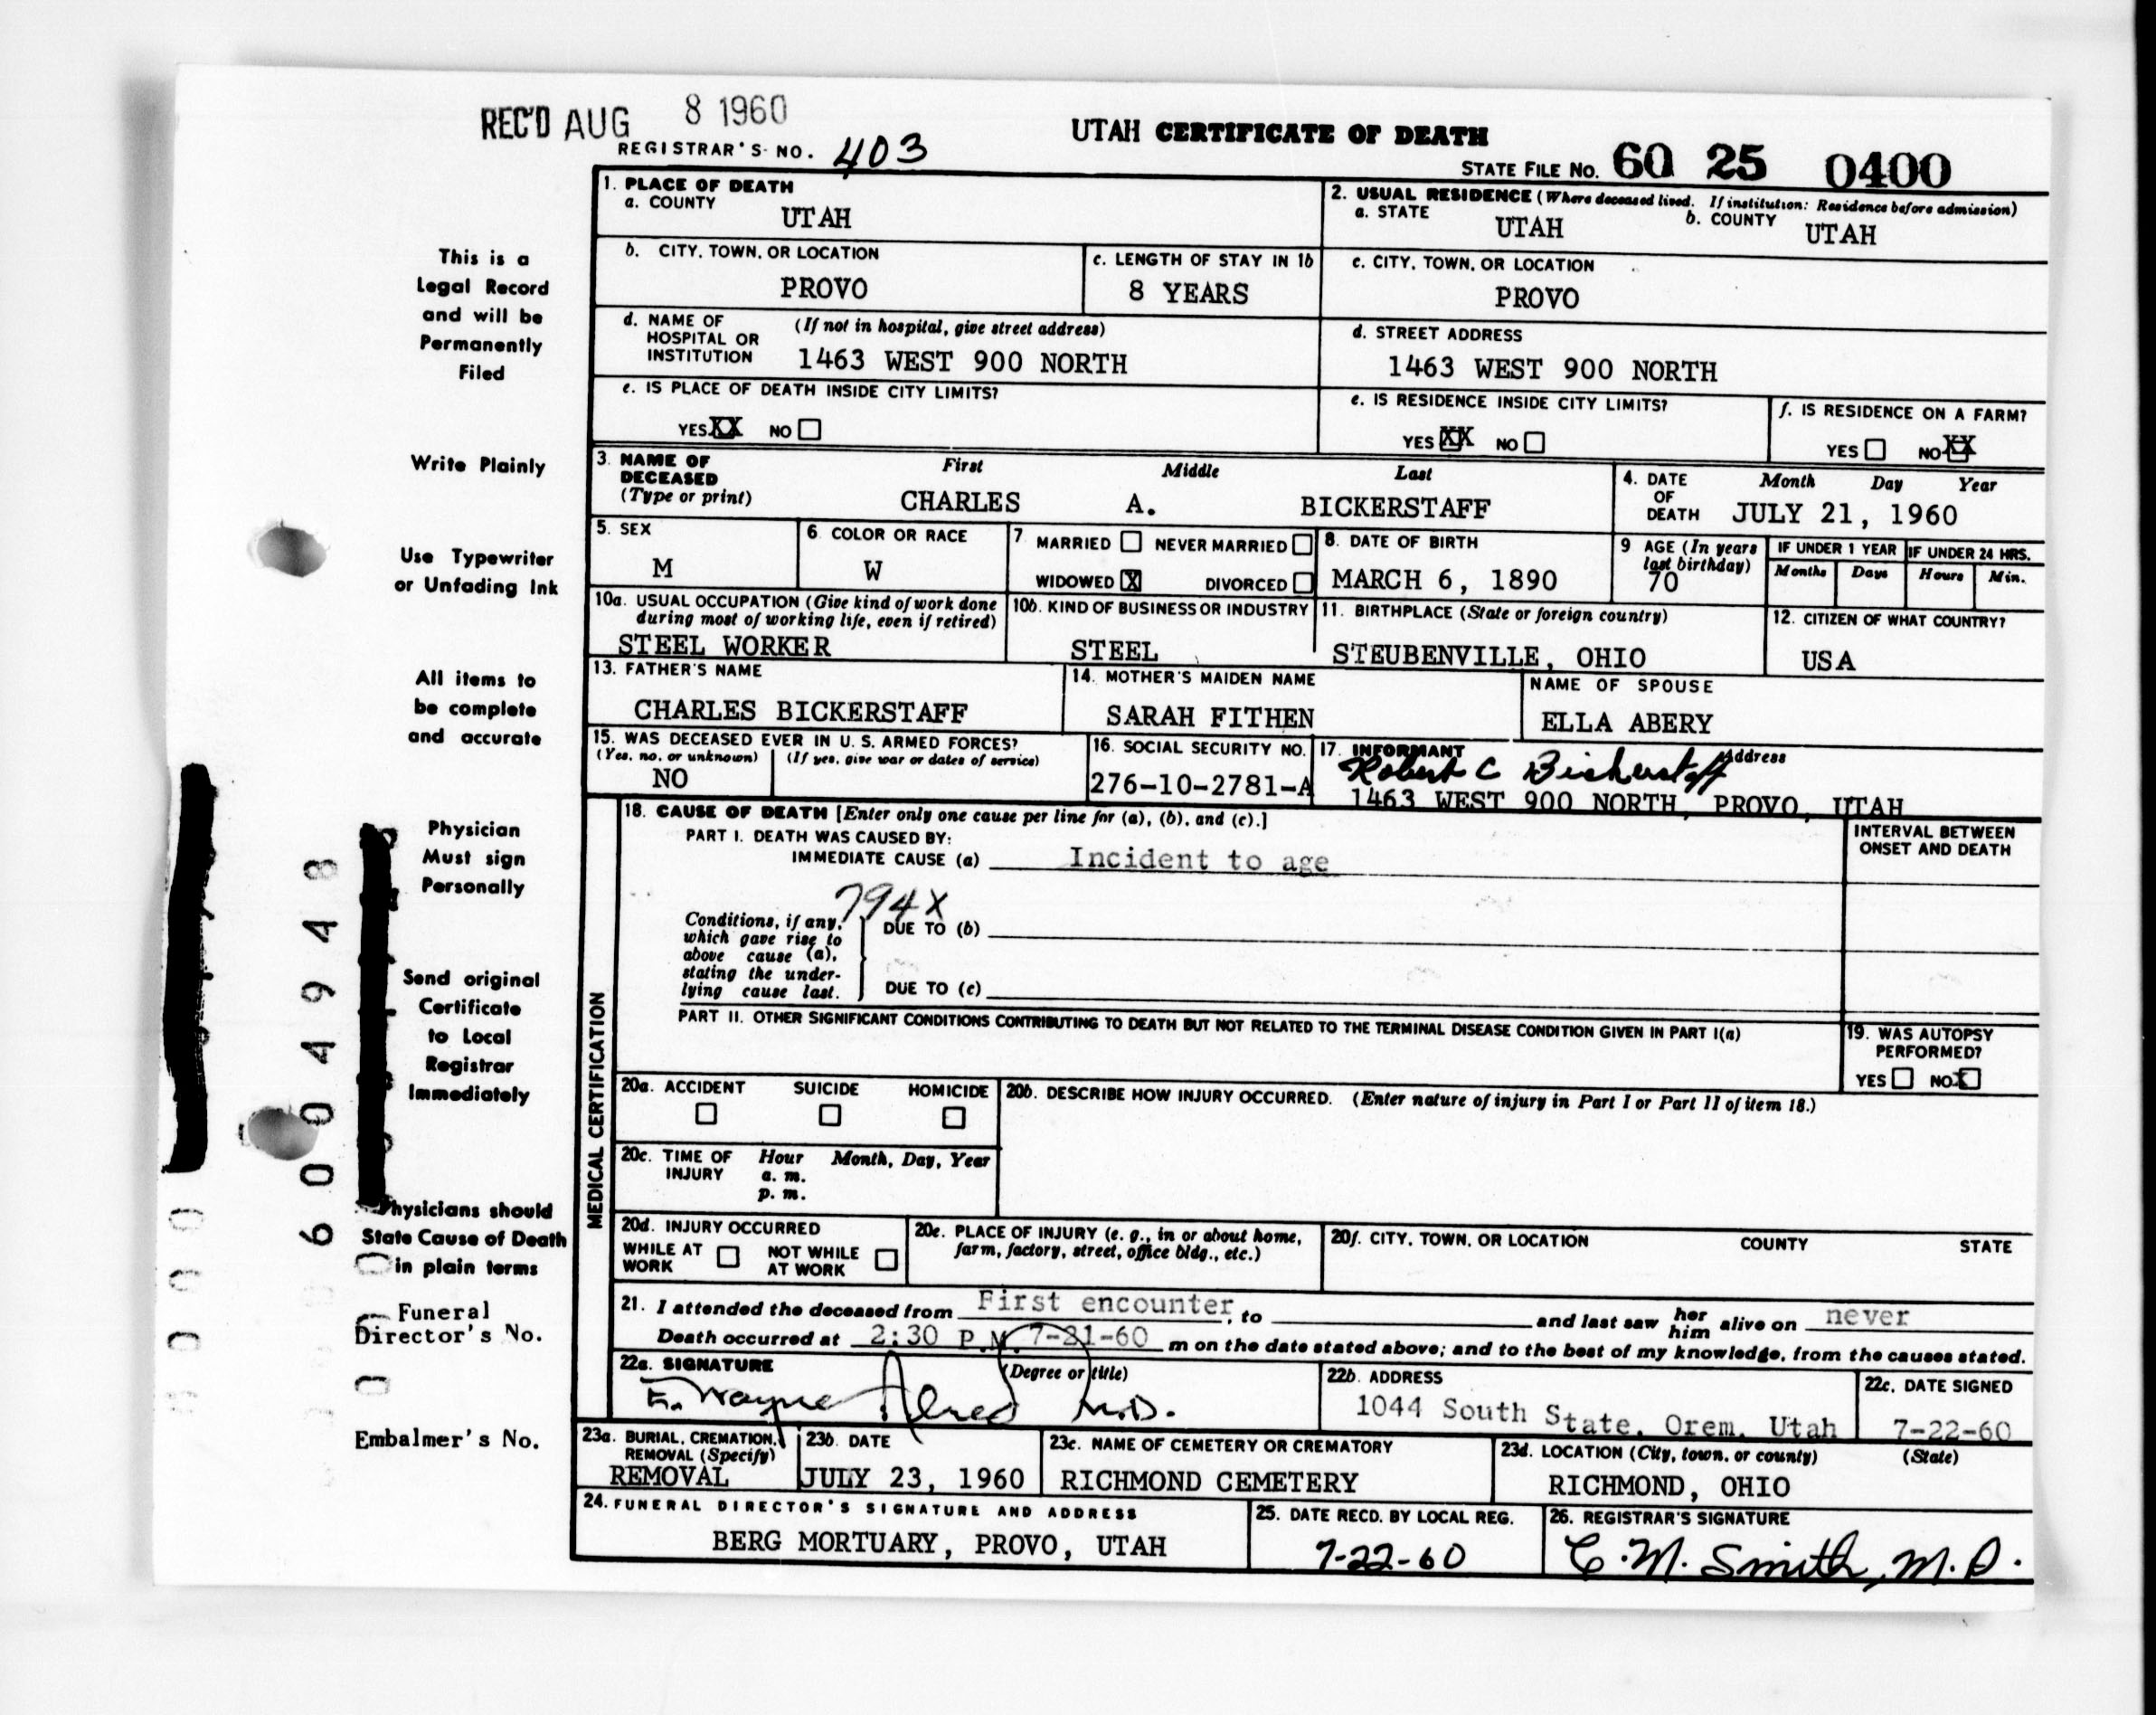 REC'D AUG 8 1960
REGISTRAR'S NO. 403
UTAH CERTIFICATE OF DEATH
STATE FILE NO. 60 25 0400
This is a
Legal Record
and will be
Permanently
Filed
Write Plainly
Use Typewriter
or Unfading Ink
All items to
be complete
and accurate
Physician
Must sign
Personally
Send original
Certificate
to Local
Registrar
Immediately
Physicians should
State Cause of Death
in plain terms
Funeral
Director's No.
Embalmer's No.
60 04948
1. PLACE OF DEATH
a. COUNTY
UTAH
2. USUAL RESIDENCE (Where deceased lived. If institution: Residence before admission)
a. STATE UTAH b. COUNTY UTAH
b. CITY, TOWN, OR LOCATION
PROVO
c. LENGTH OF STAY IN 1b
8 YEARS
c. CITY, TOWN, OR LOCATION
PROVO
d. NAME OF HOSPITAL OR INSTITUTION (If not in hospital, give street address)
1463 WEST 900 NORTH
d. STREET ADDRESS
1463 WEST 900 NORTH
e. IS PLACE OF DEATH INSIDE CITY LIMITS?
YES XX NO
e. IS RESIDENCE INSIDE CITY LIMITS?
YES XX NO
f. IS RESIDENCE ON A FARM?
YES NO XX
3. NAME OF DECEASED (Type or print)
First Middle Last
CHARLES A. BICKERSTAFF
4. DATE OF DEATH Month Day Year
JULY 21, 1960
5. SEX
M
6. COLOR OR RACE
W
7 MARRIED NEVER MARRIED
WIDOWED X DIVORCED
8. DATE OF BIRTH
MARCH 6, 1890
9 AGE (In years last birthday)
70
IF UNDER 1 YEAR
Months Days
IF UNDER 24 HRS.
Hours Min.
10a. USUAL OCCUPATION (Give kind of work done during most of working life, even if retired)
STEEL WORKER
10b. KIND OF BUSINESS OR INDUSTRY
STEEL
11. BIRTHPLACE (State or foreign country)
STEUBENVILLE, OHIO
12. CITIZEN OF WHAT COUNTRY?
USA
13. FATHER'S NAME
CHARLES BICKERSTAFF
14. MOTHER'S MAIDEN NAME
SARAH FITHEN
NAME OF SPOUSE
ELLA ABERY
15. WAS DECEASED EVER IN U. S. ARMED FORCES?
(Yes, no, or unknown) (If yes, give war or dates of service)
NO
16. SOCIAL SECURITY NO.
276-10-2781-A
17. INFORMANT Address
Robert C Bickerstaff
1463 WEST 900 NORTH, PROVO, UTAH
MEDICAL CERTIFICATION
18. CAUSE OF DEATH [Enter only one cause per line for (a), (b), and (c).]
PART I. DEATH WAS CAUSED BY:
IMMEDIATE CAUSE (a) Incident to age
INTERVAL BETWEEN
ONSET AND DEATH
794X
Conditions, if any,
which gave rise to
above cause (a),
stating the under-
lying cause last.
DUE TO (b)
DUE TO (c)
PART II. OTHER SIGNIFICANT CONDITIONS CONTRIBUTING TO DEATH BUT NOT RELATED TO THE TERMINAL DISEASE CONDITION GIVEN IN PART I(a)
19. WAS AUTOPSY
PERFORMED?
YES NO X
20a. ACCIDENT SUICIDE HOMICIDE
20b. DESCRIBE HOW INJURY OCCURRED. (Enter nature of injury in Part I or Part II of item 18.)
20c. TIME OF INJURY Hour Month, Day, Year
a. m.
p. m.
20d. INJURY OCCURRED
WHILE AT WORK NOT WHILE AT WORK
20e. PLACE OF INJURY (e. g., in or about home, farm, factory, street, office bldg., etc.)
20f. CITY, TOWN, OR LOCATION COUNTY STATE
21. I attended the deceased from First encounter, to and last saw her him alive on never
Death occurred at 2:30 P.M. 7-21-60 m on the date stated above; and to the best of my knowledge, from the causes stated.
22a. SIGNATURE (Degree or title)
E. Wayne Allred M.D.
22b. ADDRESS
1044 South State, Orem, Utah
22c. DATE SIGNED
7-22-60
23a. BURIAL, CREMATION, REMOVAL (Specify)
REMOVAL
23b. DATE
JULY 23, 1960
23c. NAME OF CEMETERY OR CREMATORY
RICHMOND CEMETERY
23d. LOCATION (City, town, or county) (State)
RICHMOND, OHIO
24. FUNERAL DIRECTOR'S SIGNATURE AND ADDRESS
BERG MORTUARY, PROVO, UTAH
25. DATE RECD. BY LOCAL REG.
7-22-60
26. REGISTRAR'S SIGNATURE
C. M. Smith, M. D.